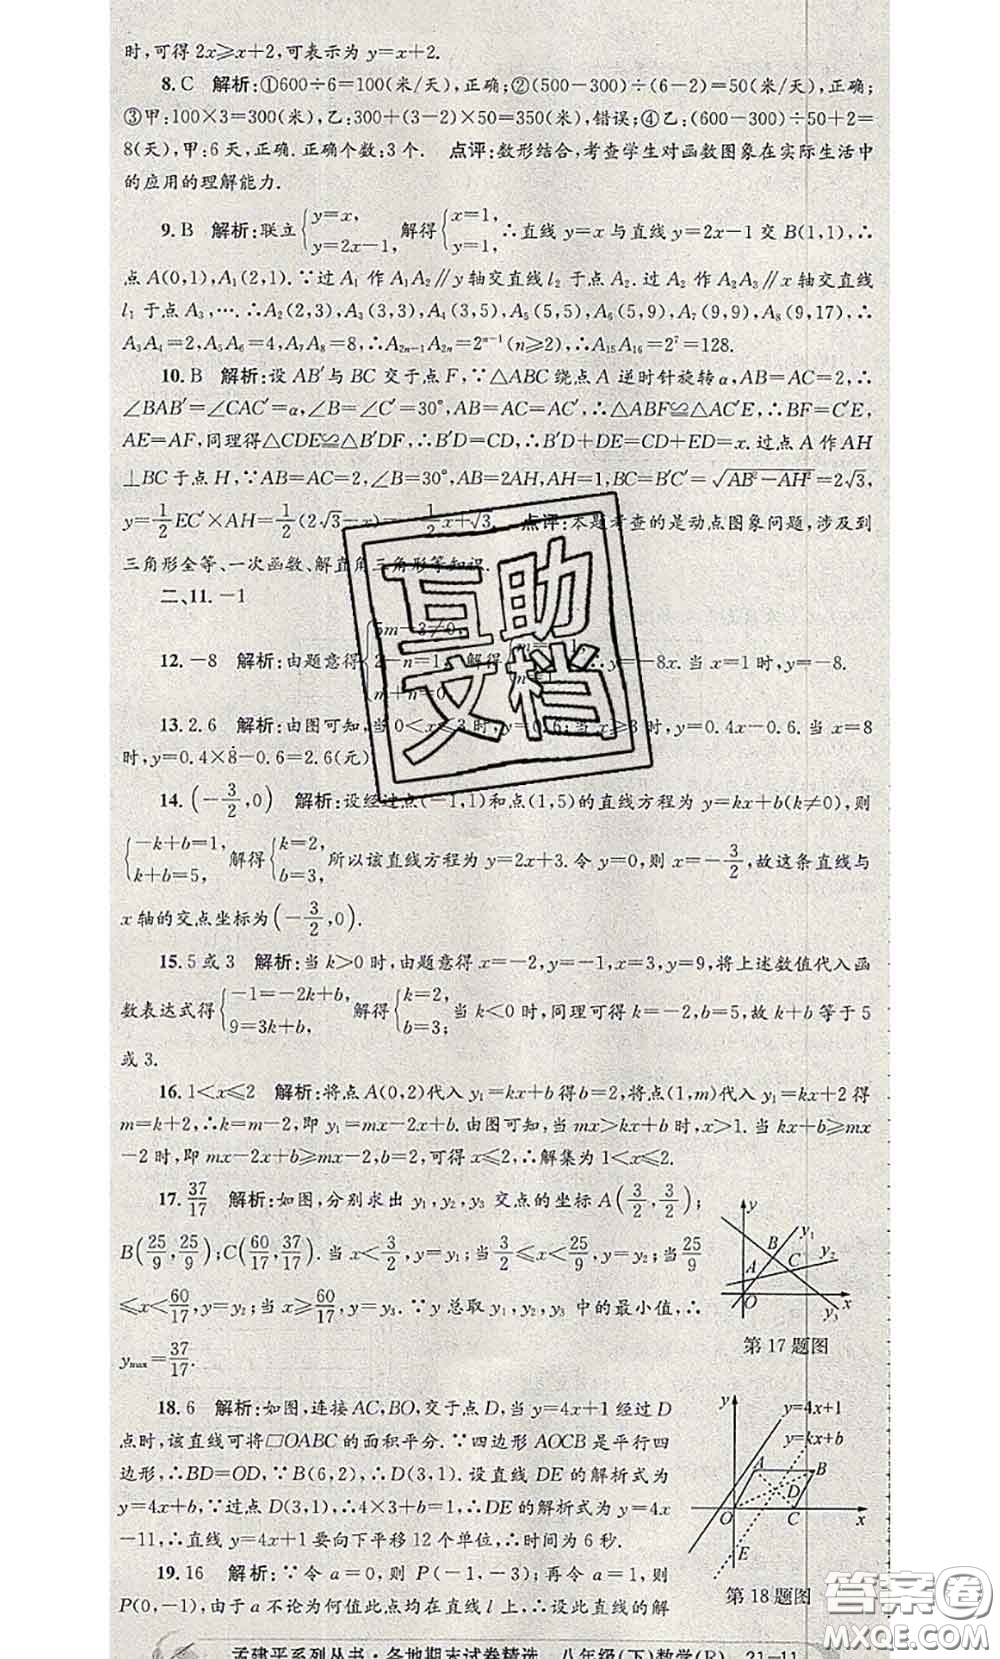 时,可得 2x≥x+2,可表示为 y=x+2.
8.C 解析:①600÷6=100(米/天),正确;②(500-300)÷(6-2)=50(米/天),正确;
③甲:100×3=300(米),乙:300+(3-2)×50=350(米),错误;④乙:(600-300)÷50+2=
8(天),甲:6天,正确.正确个数:3个. 点评:数形结合,考查学生对函数图象在实际生活中
的应用的理解能力.
9.B 解析:联立{y=x, y=2x-1, 解得{x=1, y=1, ∴直线 y=x 与直线 y=2x-1 交 B(1,1),∴
点 A(0,1),A₁(2,1).∵过 A₁ 作 A₁A₂∥y 轴交直线 l₂ 于点 A₂.过 A₂ 作 A₂A₃∥x 轴交直线
l₁ 于点 A₃,….∴A₂(2,3),A₃(3,3),A₄(3,5),A₅(5,5),A₆(5,9),A₇(9,9),A₈(9,17),∴
A₃A₄=2,A₅A₆=4,A₇A₈=8,∴A₂ₙ₋₁A₂ₙ=2ⁿ⁻¹(n≥2),∴A₁₅A₁₆=2⁷=128.
10.B 解析:设 AB′与 BC 交于点 F,∵△ABC 绕点 A 逆时针旋转α,AB=AC=2,∴
∠BAB′=∠CAC′=α,∠B′=∠C′=30°,AB′=AC=AC′,∴△ABF≌△AC′E,∴BF=C′E,
AE=AF,同理得△CDE≌△B′DF,∴B′D=CD,∴B′D+DE=CD+ED=x.过点 A 作 AH
⊥BC 于点 H,∵AB=AC=2,∠B=30°,AB=2AH,AH=1,BC=B′C′=√(AB²-AH²)=2√3,
y=1/2 EC′×AH=1/2(2√3-x)=-1/2x+√3. 点评:本题考查的是动点图象问题,涉及到
三角形全等、一次函数、解直角三角形等知识.
二、11.-1
12.-8 解析:由题意得{5m-3≠0, 2-n=1, m+n=0, 解得 ∴y=-8x.当 x=1 时,y=-8.
13.2.6 解析:由图可知,当 0<x≤3 时,y=0.6;当 x≥3 时,y=0.4x-0.6.当 x=8
时,y=0.4×8-0.6=2.6(元)
14.(-3/2,0) 解析:设经过点(-1,1)和点(1,5)的直线方程为 y=kx+b(k≠0),则
{-k+b=1, k+b=5, 解得{k=2, b=3, 所以该直线方程为 y=2x+3.令 y=0,则 x=-3/2,故这条直线与
x 轴的交点坐标为(-3/2,0).
15.5 或 3 解析:当 k>0 时,由题意得 x=-2,y=-1,x=3,y=9,将上述数值代入函
数表达式得{-1=-2k+b, 9=3k+b, 解得{k=2, b=3; 当 k<0 时,同理可得 k=-2,b=5,故 k+b 等于 5
或 3.
16.1<x≤2 解析:将点 A(0,2)代入 y₁=kx+b 得 b=2,将点(1,m)代入 y₁=kx+2 得
m=k+2,∴k=m-2,即 y₁=mx-2x+b.由图可知,当 mx>kx+b 时,x>1.当 kx+b≥mx
-2 时,即 mx-2x+b≥mx-2,b=2,可得 x≤2,∴解集为 1<x≤2.
17.37/17 解析:如图,分别求出 y₁,y₂,y₃ 交点的坐标 A(3/2,3/2);
B(25/9,25/9);C(60/17,37/17).当 x<3/2,y=y₁;当3/2≤x<25/9,y=y₂;当25/9
≤x<60/17,y=y₂;当 x≥60/17,y=y₃.∵y 总取 y₁,y₂,y₃ 中的最小值,∴
yₘₐₓ=37/17.
y
y₁
B
y₂
C
A
O
x
y₃
第17题图
18.6 解析:如图,连接 AC,BO,交于点 D,当 y=4x+1 经过 D
点时,该直线可将□OABC 的面积平分.∵四边形 AOCB 是平行四
边形,∴BD=OD,∵B(6,2),∴D(3,1).设直线 DE 的解析式为
y=4x+b,∵过点 D(3,1),∴4×3+b=1,∴DE 的解析式为 y=4x
-11,∴直线 y=4x+1 要向下平移 12 个单位,∴时间为 6 秒.
y
y=4x+1
y=kx+b
A
B
D
O
C
x
E
第18题图
19.16 解析:∵令 a=0,则 P(-1,-3);再令 a=1,则
P(0,-1),由于 a 不论为何值此点均在直线 l 上,∴设此直线的解
孟建平系列丛书·各地期末试卷精选 八年级(下)数学(R) 21-11
互助
文档
答案卷
MXQE.COM